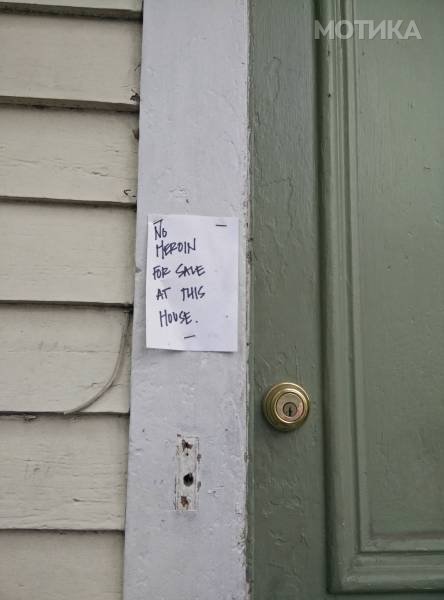 МОТИКА
NO
HEROIN
FOR SALE
AT THIS
HOUSE.